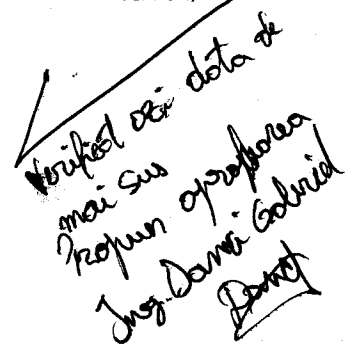 Verificat azi data de
mai sus
Propun aprobarea
Ing. Dami Gabriel